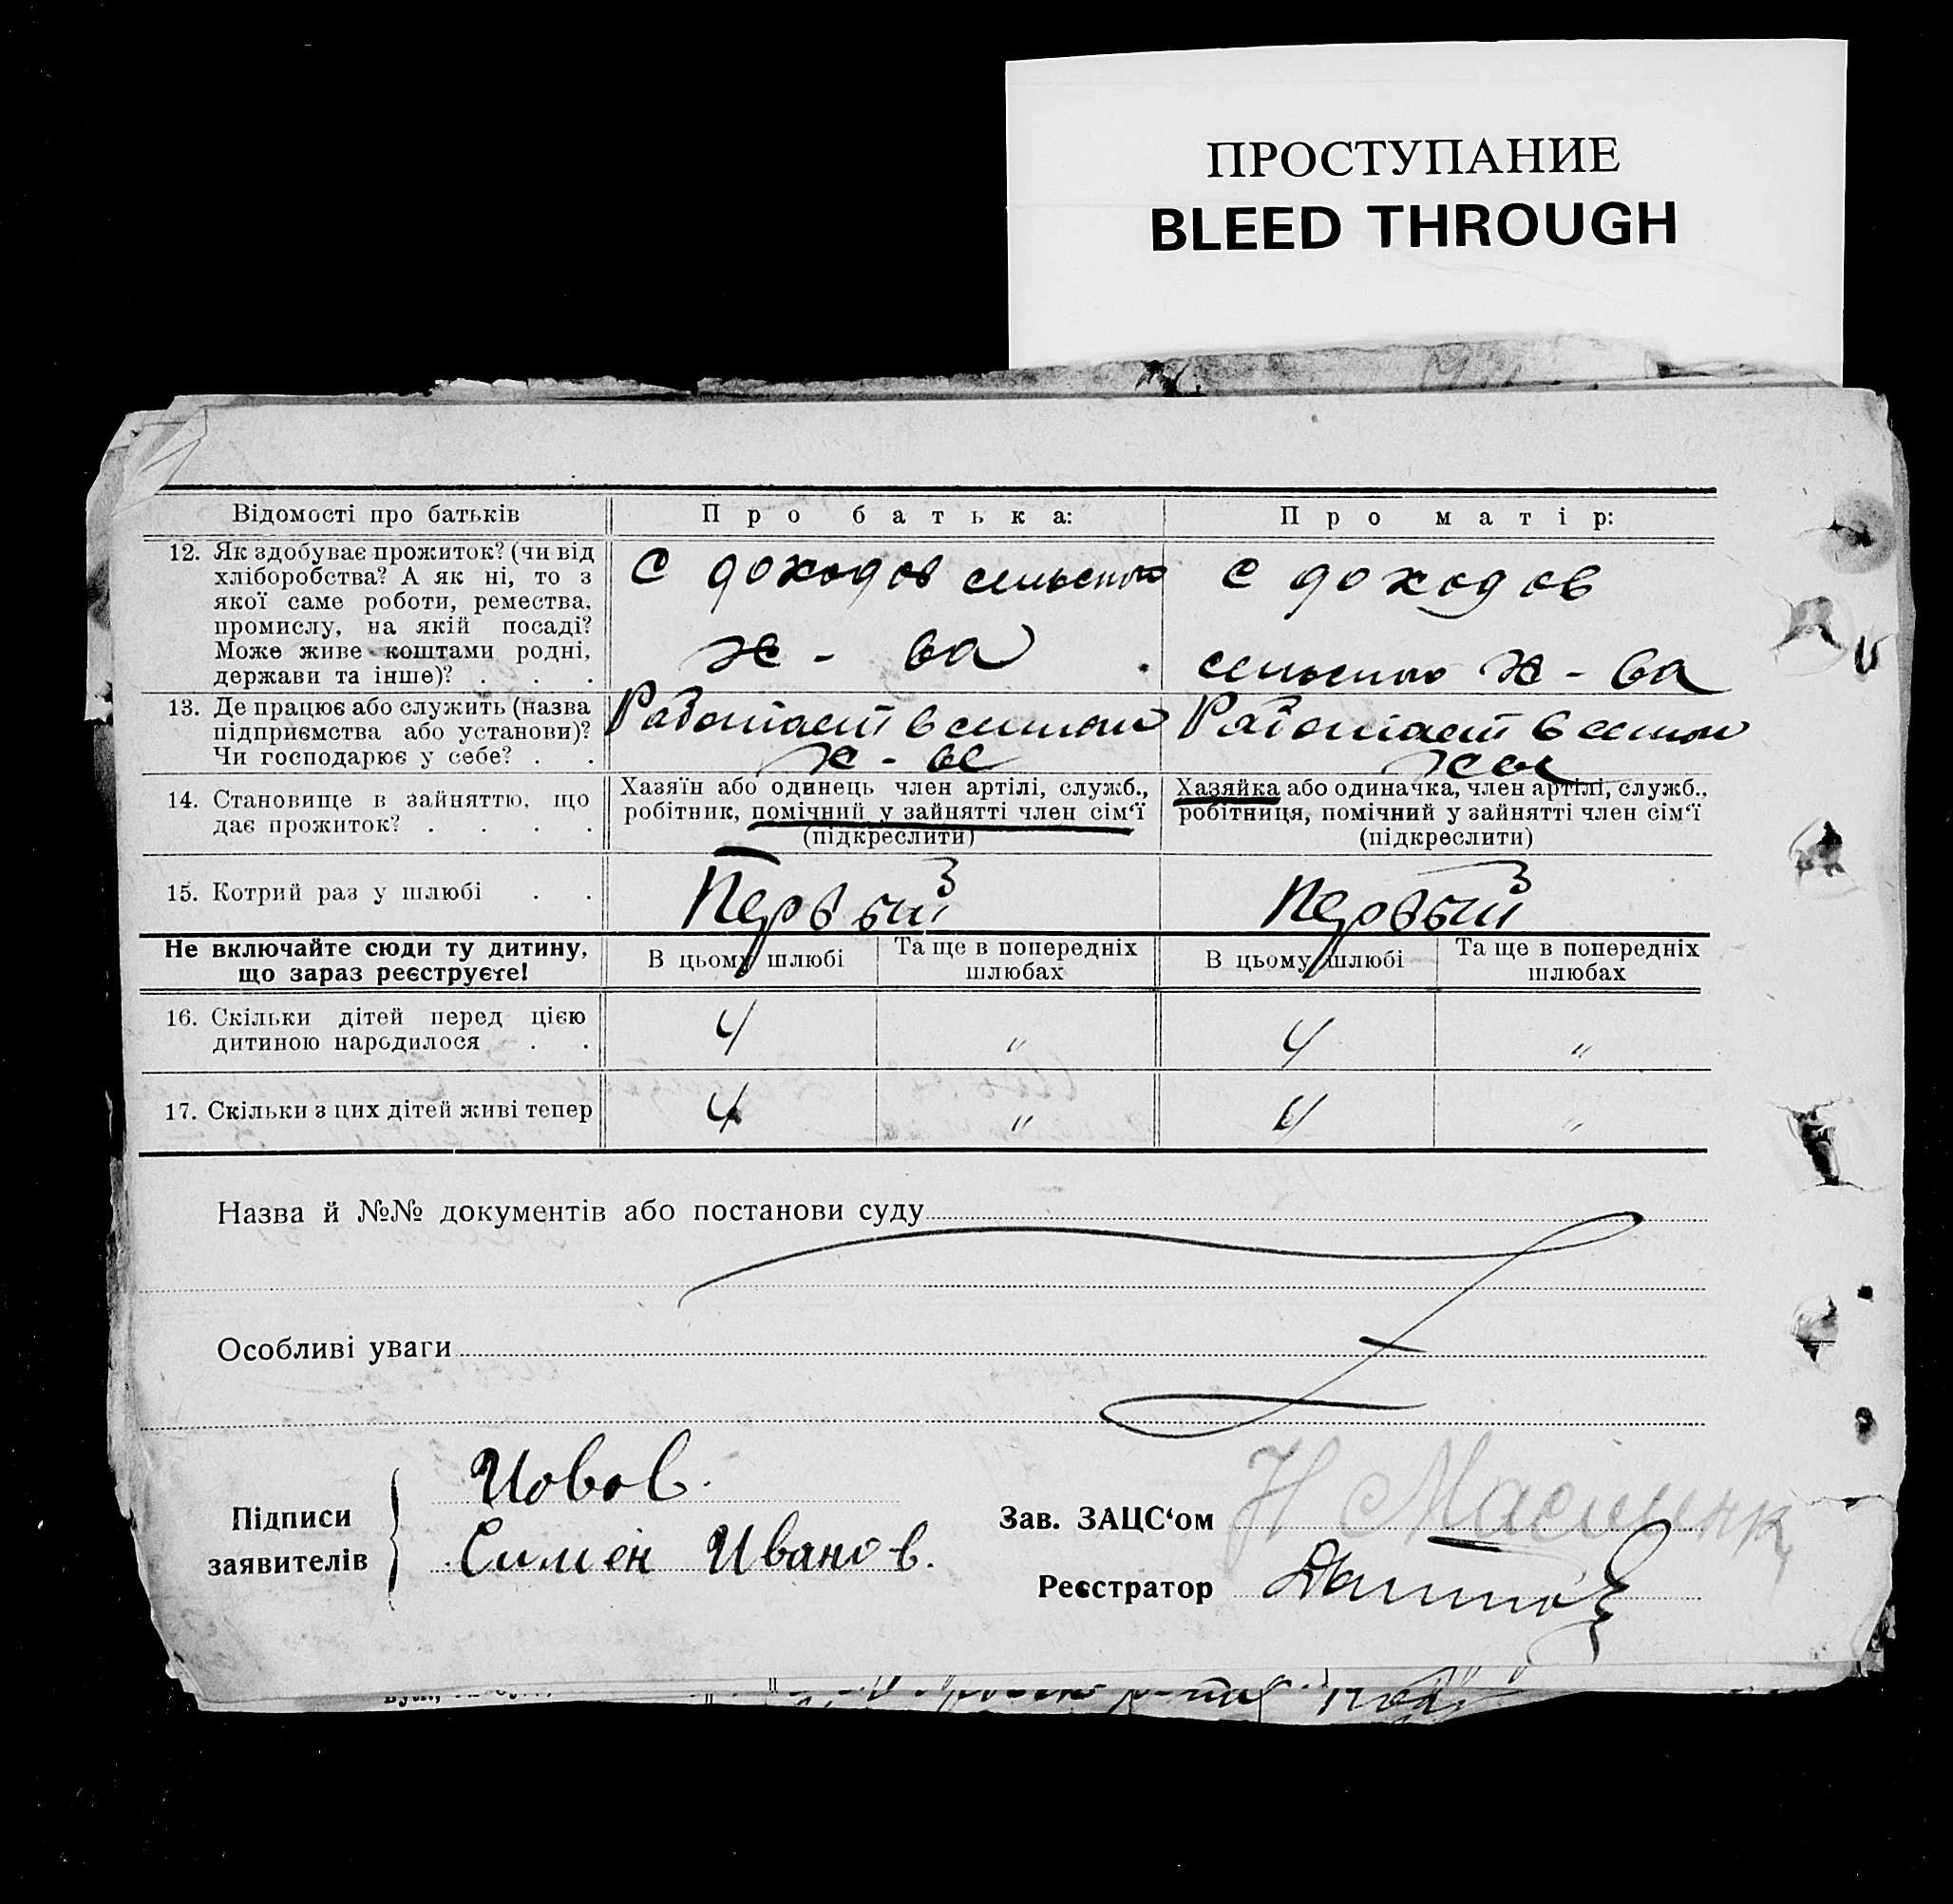 ПРОСТУПАНИЕ
BLEED THROUGH
Відомості про батьків
Про батька:
Про матір:
12. Як здобуває прожиток? (чи від
хліборобства? А як ні, то з
якої саме роботи, ремества,
промислу, на якій посаді?
Може живе коштами родні,
держави та інше)? . . .
С доходов сельского
х - ва
С доходов
сельского х - ва
13. Де працює або служить (назва
підприємства або установи)?
Чи господарює у себе? . .
Работает в сельском
х - ве
Работает в сельском
х-ве
14. Становище в зайняттю, що
дає прожиток? . . . .
Хазяїн або одинець член артілі, служб.,
робітник, помічний у зайнятті член сім‘ї
(підкреслити)
Хазяйка або одиначка, член артілі, служб.,
робітниця, помічний у зайнятті член сім‘ї
(підкреслити)
15. Котрий раз у шлюбі . .
Первый
Первый
Не включайте сюди ту дитину,
що зараз реєструєте!
В цьому шлюбі
Та ще в попередніх
шлюбах
В цьому шлюбі
Та ще в попередніх
шлюбах
16. Скільки дітей перед цією
дитиною народилося . .
4 " 4 "
17. Скільки з цих дітей живі тепер
4 " 4 "
Назва й №№ документів або постанови суду
Особливі уваги
Підписи
заявителів
Иовов.
Симен Иванов.
Зав. ЗАЦС‘ом
Реєстратор